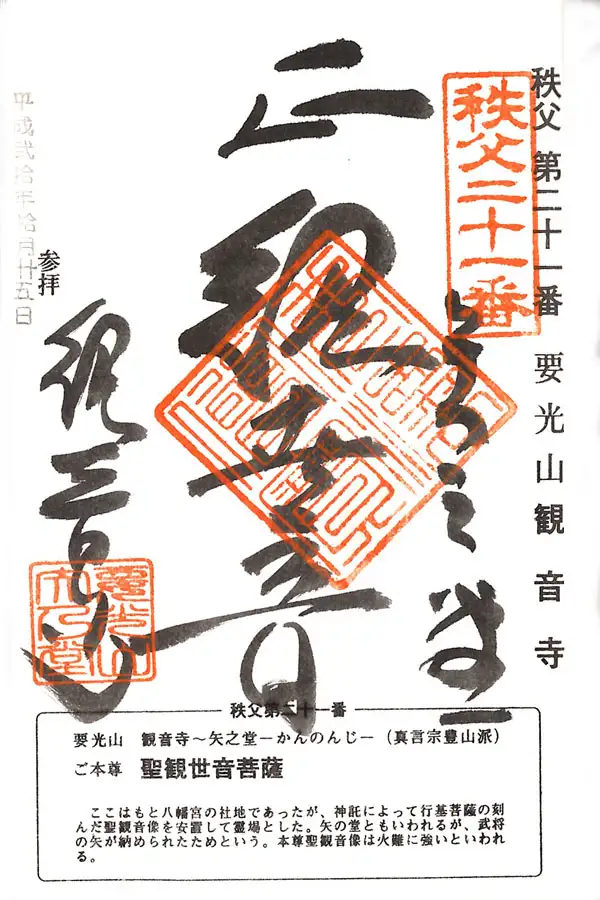 秩父 第二十一番 要光山観音寺
秩父二十一番
正観世音
矢之堂
参拝
観音寺
平成弐拾年拾月廿五日
秩父第二十一番
要光山 観音寺～矢之堂－かんのんじ－（真言宗豊山派）
ご本尊 聖観世音菩薩
ここはもと八幡宮の社地であったが、神託によって行基菩薩の刻
んだ聖観音像を安置して霊場とした。矢の堂ともいわれるが、武将
の矢が納められたためという。本尊聖観音像は火難に強いといわれ
る。